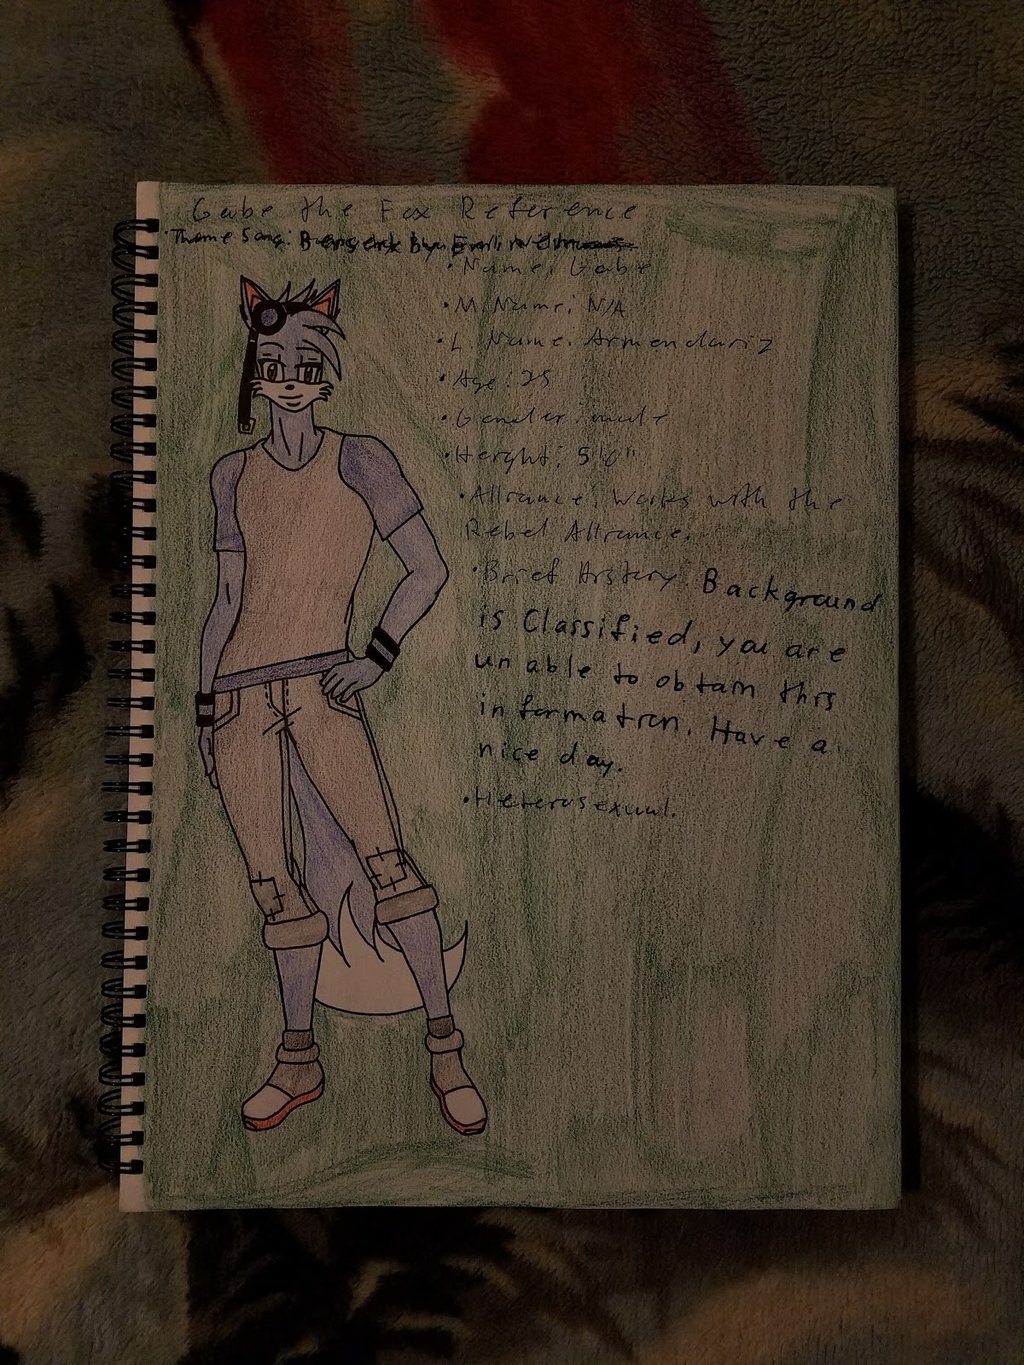 Gabe the Fox Reference
• Theme Song: Berserk by
• Name: Gabe
• M. Name: N/A
• L. Name: Armendariz
• Age: 25
• Gender: male
• Height: 5'6"
• Alliance: Works with the
Rebel Alliance.
• Brief History: Background
is Classified, you are
unable to obtain this
information. Have a
nice day.
• Heterosexual.